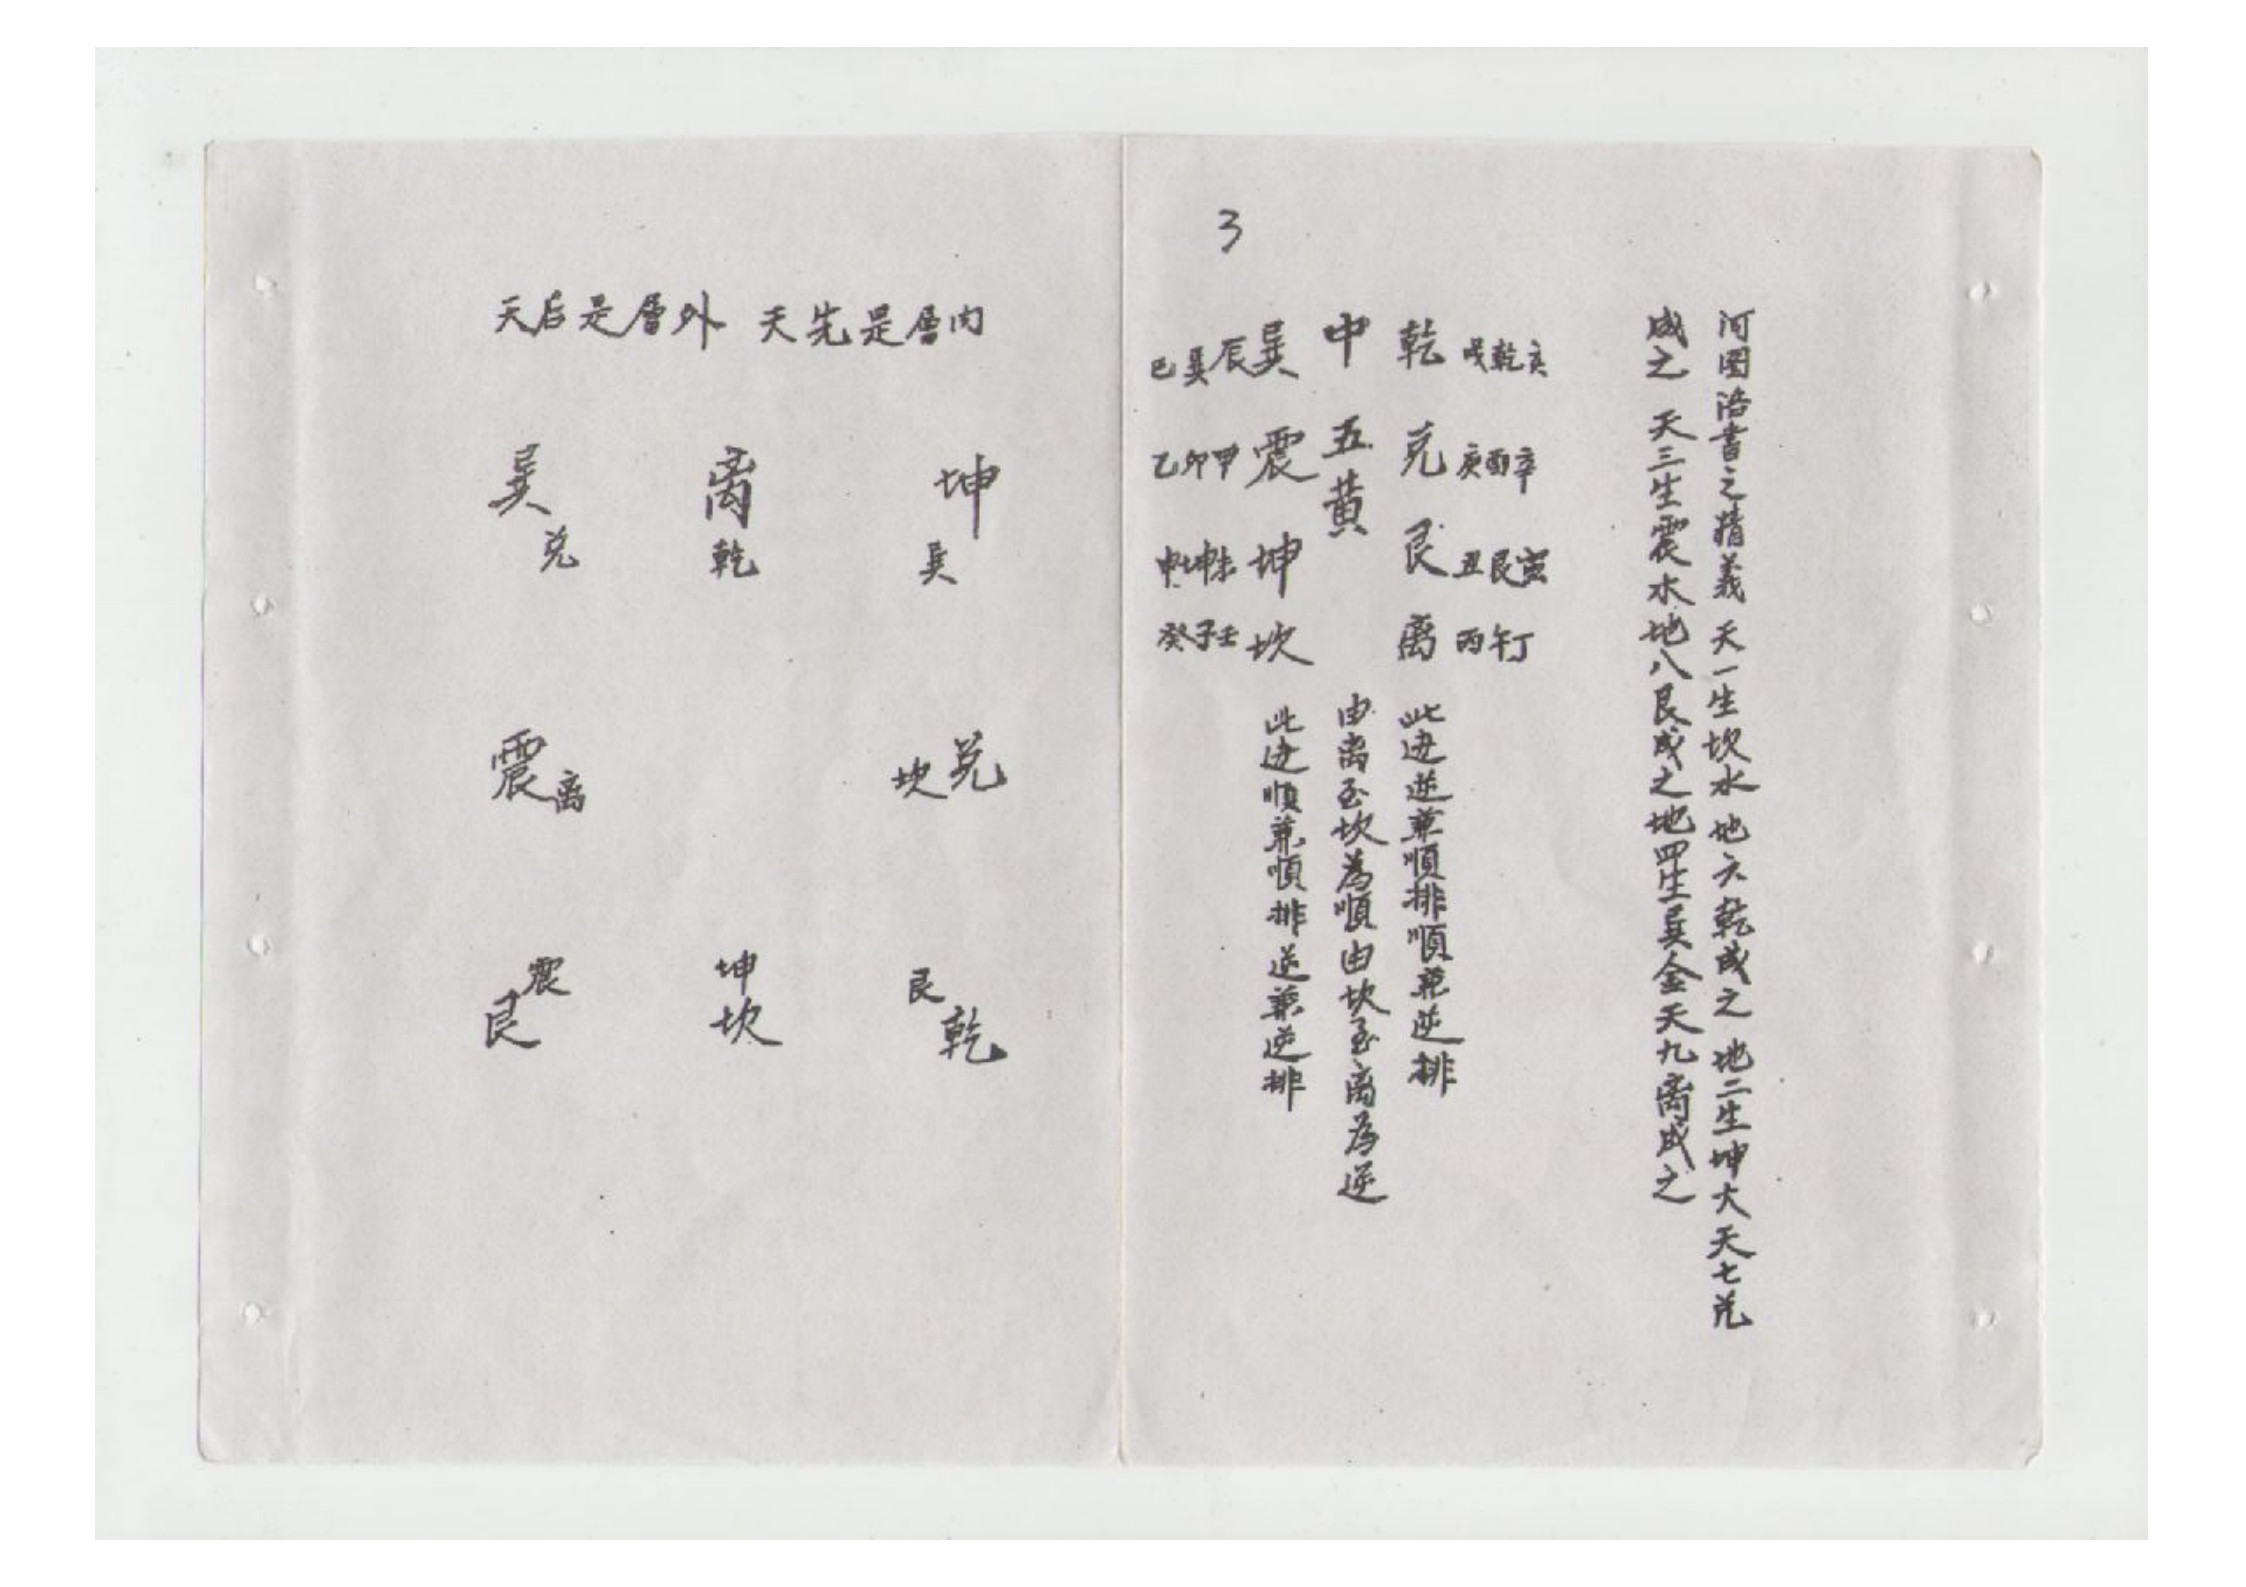 3
河图洛書之精義 天一生坎水地六乾成之 地二生坤大天七兑
成之 天三生震水地八艮成之地四生巽金天九离成之
戌乾亥 庚酉辛 丑艮寅 丙午丁
乾 兑 艮 离 此进逆兼順排順兼逆排
中 五黄 由离至坎為順由坎至离為逆
巽 震 坤 坎 此进順兼順排逆兼逆排
巳巽辰 乙卯甲 申坤未 癸子壬
天后是層外 天先是層内
巽 离 坤
兑 乾 巽
震 离 坎 兑
震 坤 艮
艮 坎 乾